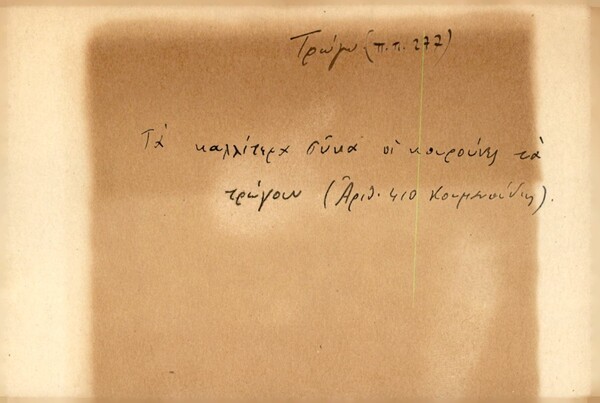 Τρώγω (π.π. 277)
Τὰ καλλίτερα σῦκα οἱ κουροῦνες τὰ
τρώγουν (Ἀριθ. 410 Κουμανούδης).